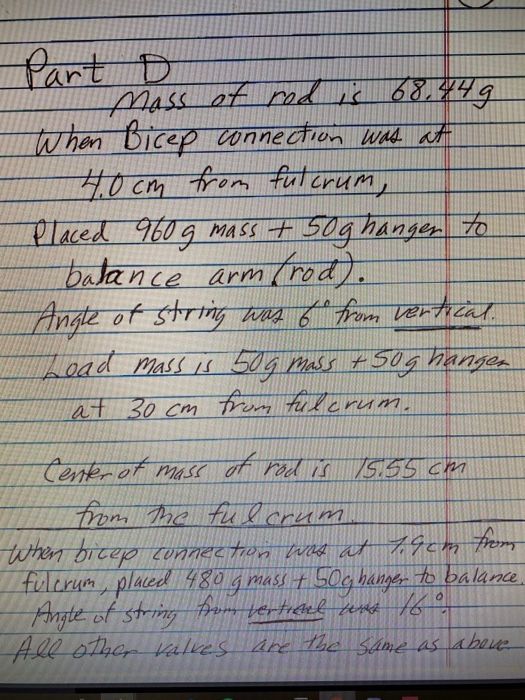 Part D
Mass of rod is 68.44g
When Bicep connection was at
4.0 cm from fulcrum,
Placed 960g mass + 50g hanger to
balance arm (rod).
Angle of string was 6° from vertical.
Load mass is 50g mass + 50g hanger
at 30 cm from fulcrum.
Center of mass of rod is 15.55 cm
from the fulcrum.
When bicep connection was at 7.9cm from
fulcrum, placed 480 g mass + 50g hanger to balance.
Angle of string from vertical was 16°.
All other values are the same as above.